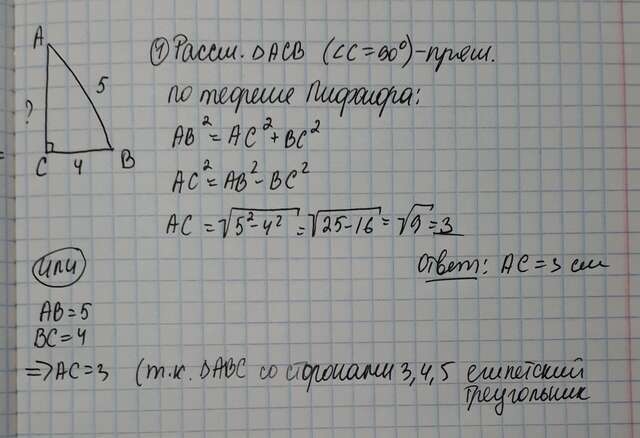 A
5
?
C 4 B
① Рассм. △ACB (∠C=90°)-прям.
по теореме Пифагора:
AB² = AC² + BC²
AC² = AB² - BC²
AC = √5²-4² = √25-16 = √9 = 3
Ответ: AC = 3 см
или
AB=5
BC=4
=> AC=3 (т.к. △ABC со сторонами 3, 4, 5 египетский
треугольник